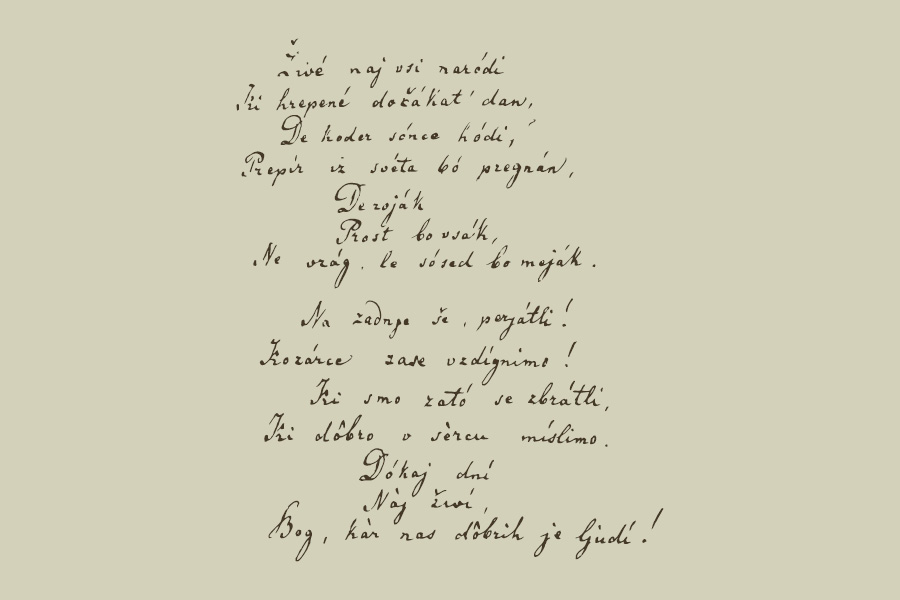 Živé naj vsi naródi
Ki hrepené dožákat' dan,
De koder sónce hódi,
Prepir iz svéta bó pregnán,
De roják
Prost bo vsák,
Ne vrág, le sósed bo meják.
Na zadnje še, perjátli!
Kozárce zase vzdígnimo!
Ki smo zató se zbrátli,
Ki dôbro v sèrcu míslimo.
Dókaj dní
Nàj živí,
Bog, kàr nas dôbrih je ljudí!